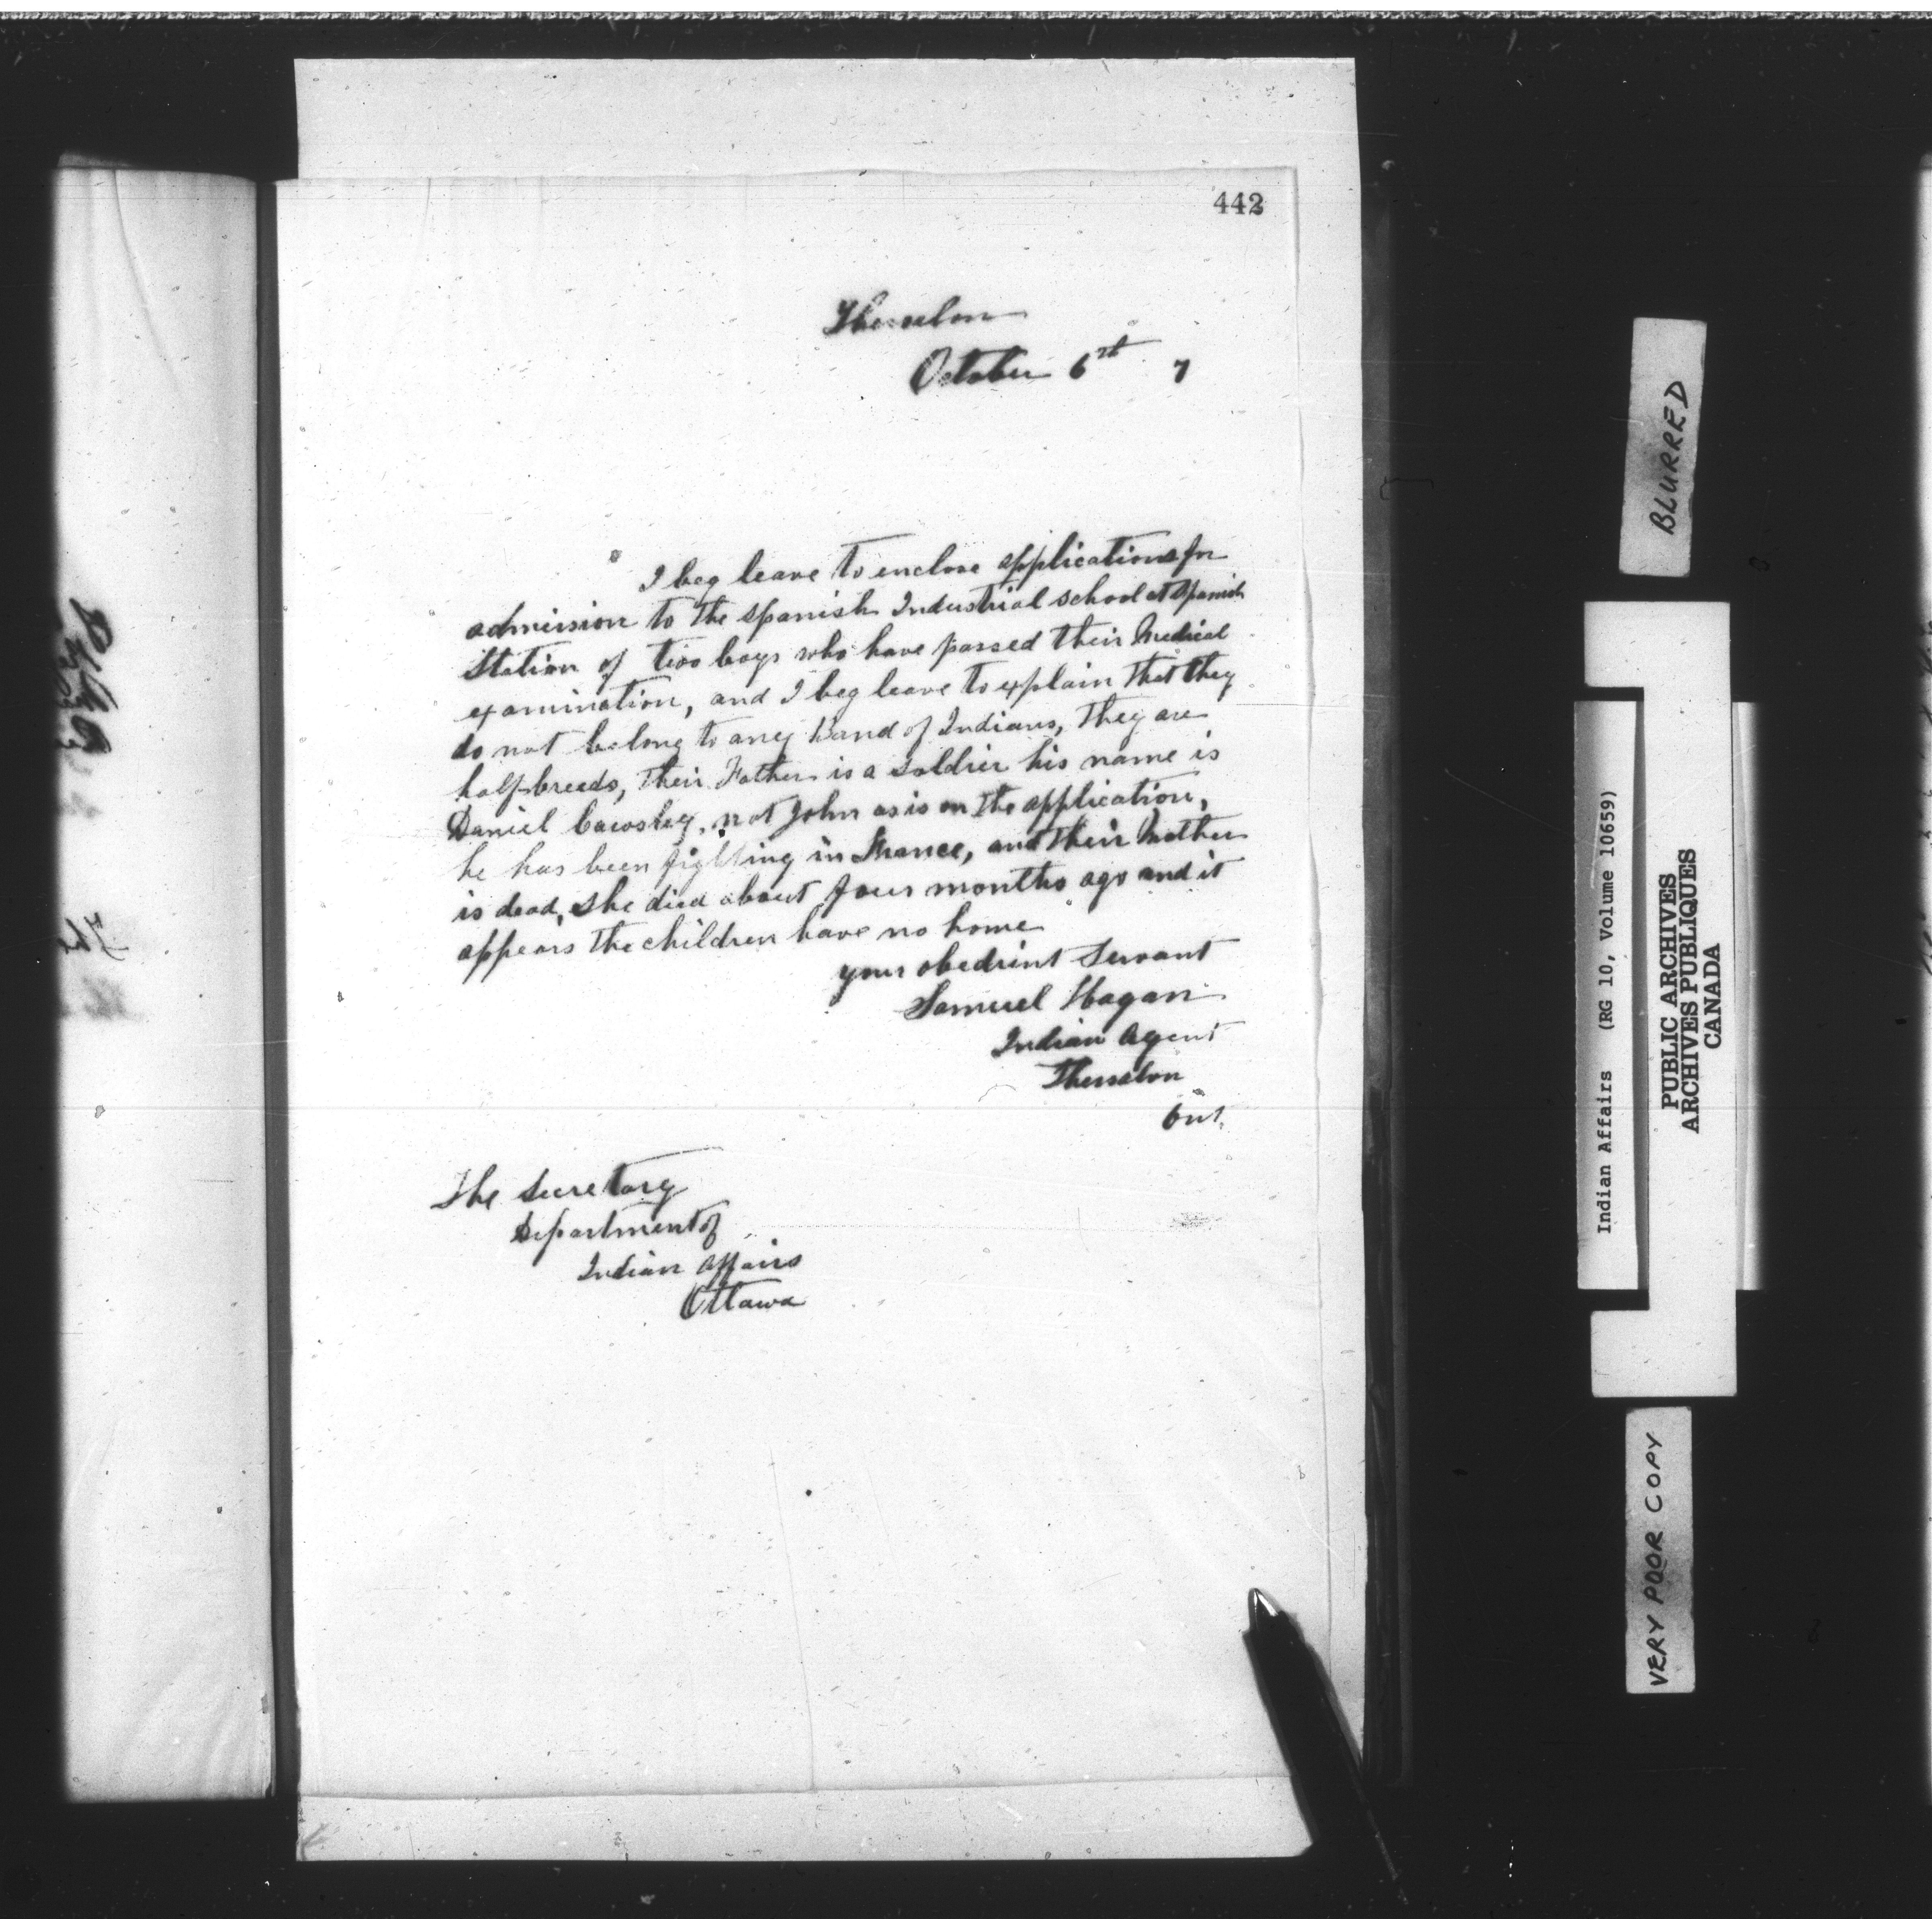 442
Thessalon
October 6th 7
I beg leave to enclose applications for
admission to the Spanish Industrial school at Spanish
Station of two boys who have passed their Medical
examination, and I beg leave to explain that they
do not belong to any Band of Indians, They are
half-breeds, Their Father is a soldier his name is
Daniel Cawsley, not John as is on the application,
he has been fighting in France, and their Mother
is dead, she died about four months ago and it
appears the children have no home
your obedient Servant
Samuel Hagan
Indian Agent
Thessalon
Ont.
The Secretary
Department of
Indian Affairs
Ottawa
BLURRED
Indian Affairs (RG 10, Volume 10659)
PUBLIC ARCHIVES
ARCHIVES PUBLIQUES
CANADA
VERY POOR COPY